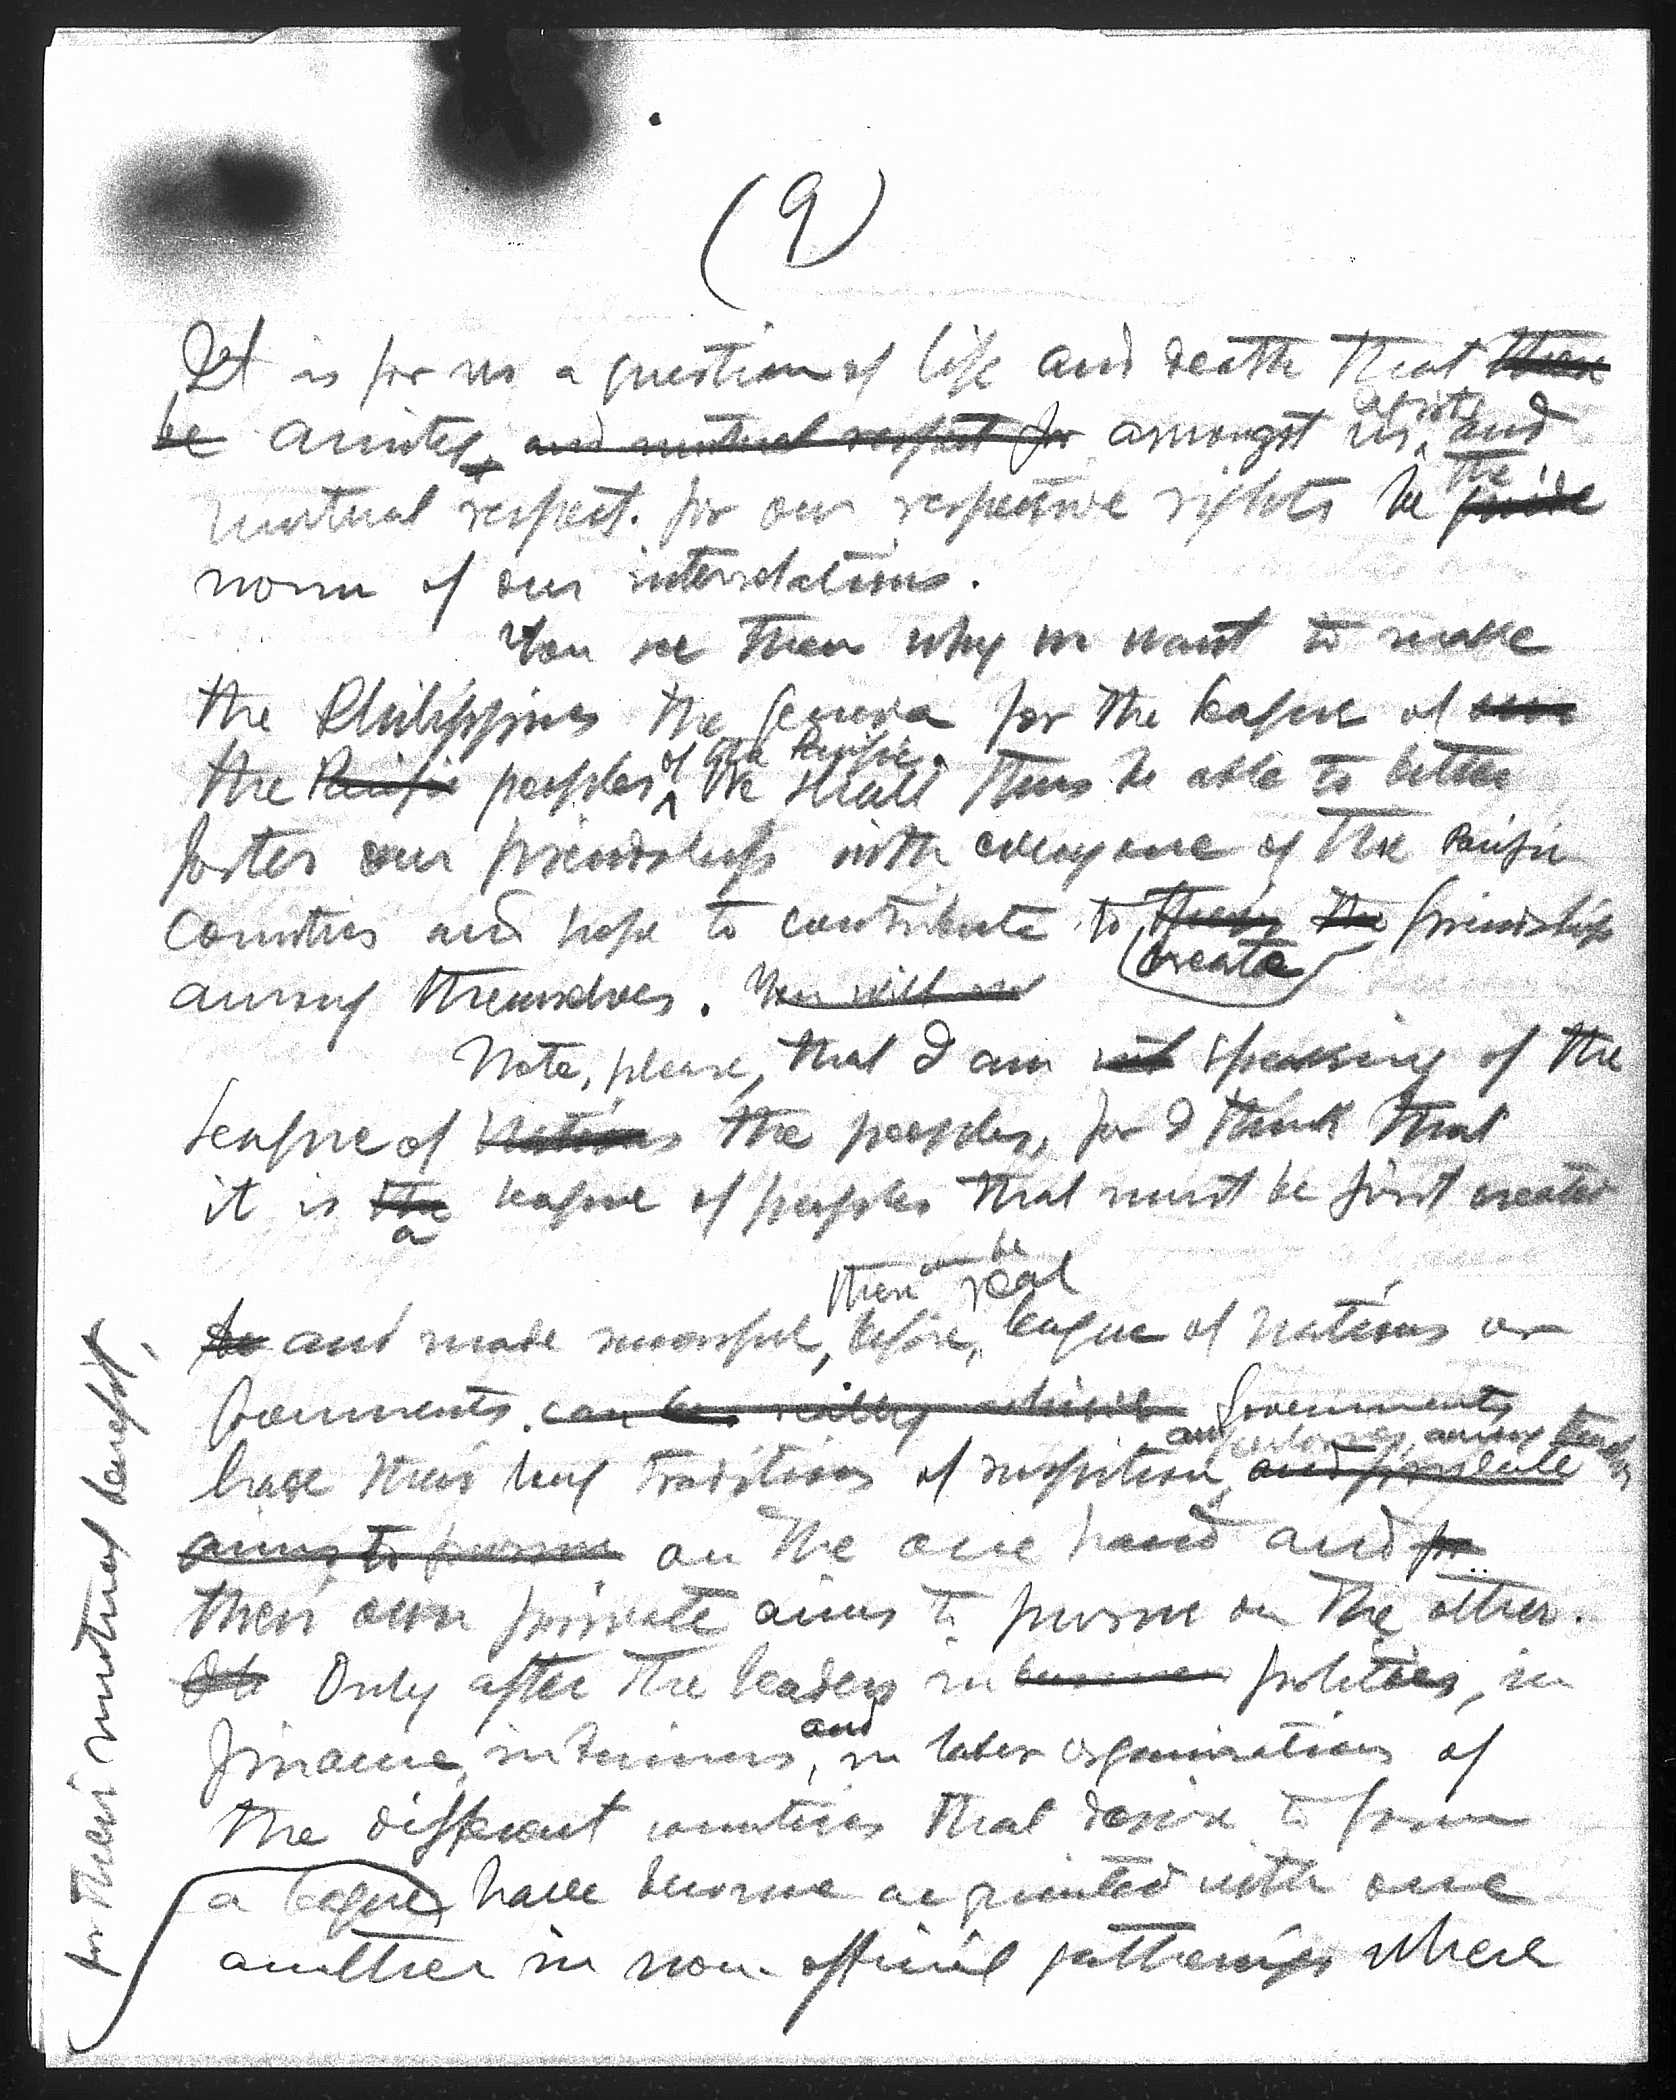 (9)
It is for us a question of life and death that there
be amity, and mutual respect for amongst us exists and
mutual respect. for our respective rights be the guide
norm of our interrelations.
You see then why we want to make
the Philippines the Geneva for the league of our
the Pacific peoples of the Pacific. We shall thus be able to better
foster our friendships with everyone of the Pacific
countries and hope to contribute to their the create friendship
among themselves. You will see
Note, please, that I am not speaking of the
League of Nations the peoples, for I think that
it is the a league of peoples that must be first created
there can be real
to and made successful, before, league of nations or
Governments. can be really achieved Governments
have their long traditions of suspicion, and jealousy among themselves and private
aims to pursue on the one hand and for
their own private aims to pursue on the other.
It Only after the leaders in business politics, in
finance, in business, and in labor organizations of
the different countries that desire to form
a league have become acquainted with one
another in non-official gatherings where
for their mutual benefit,